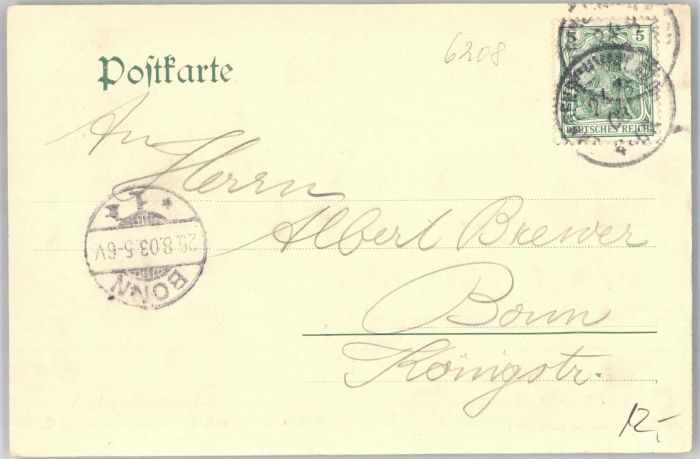 Postkarte
6208
5 5
DEUTSCHES REICH
An
Herrn
Albert Brewer
Bonn
Königstr.
* 1 *
26.8.03.5-6V
BONN
12,-